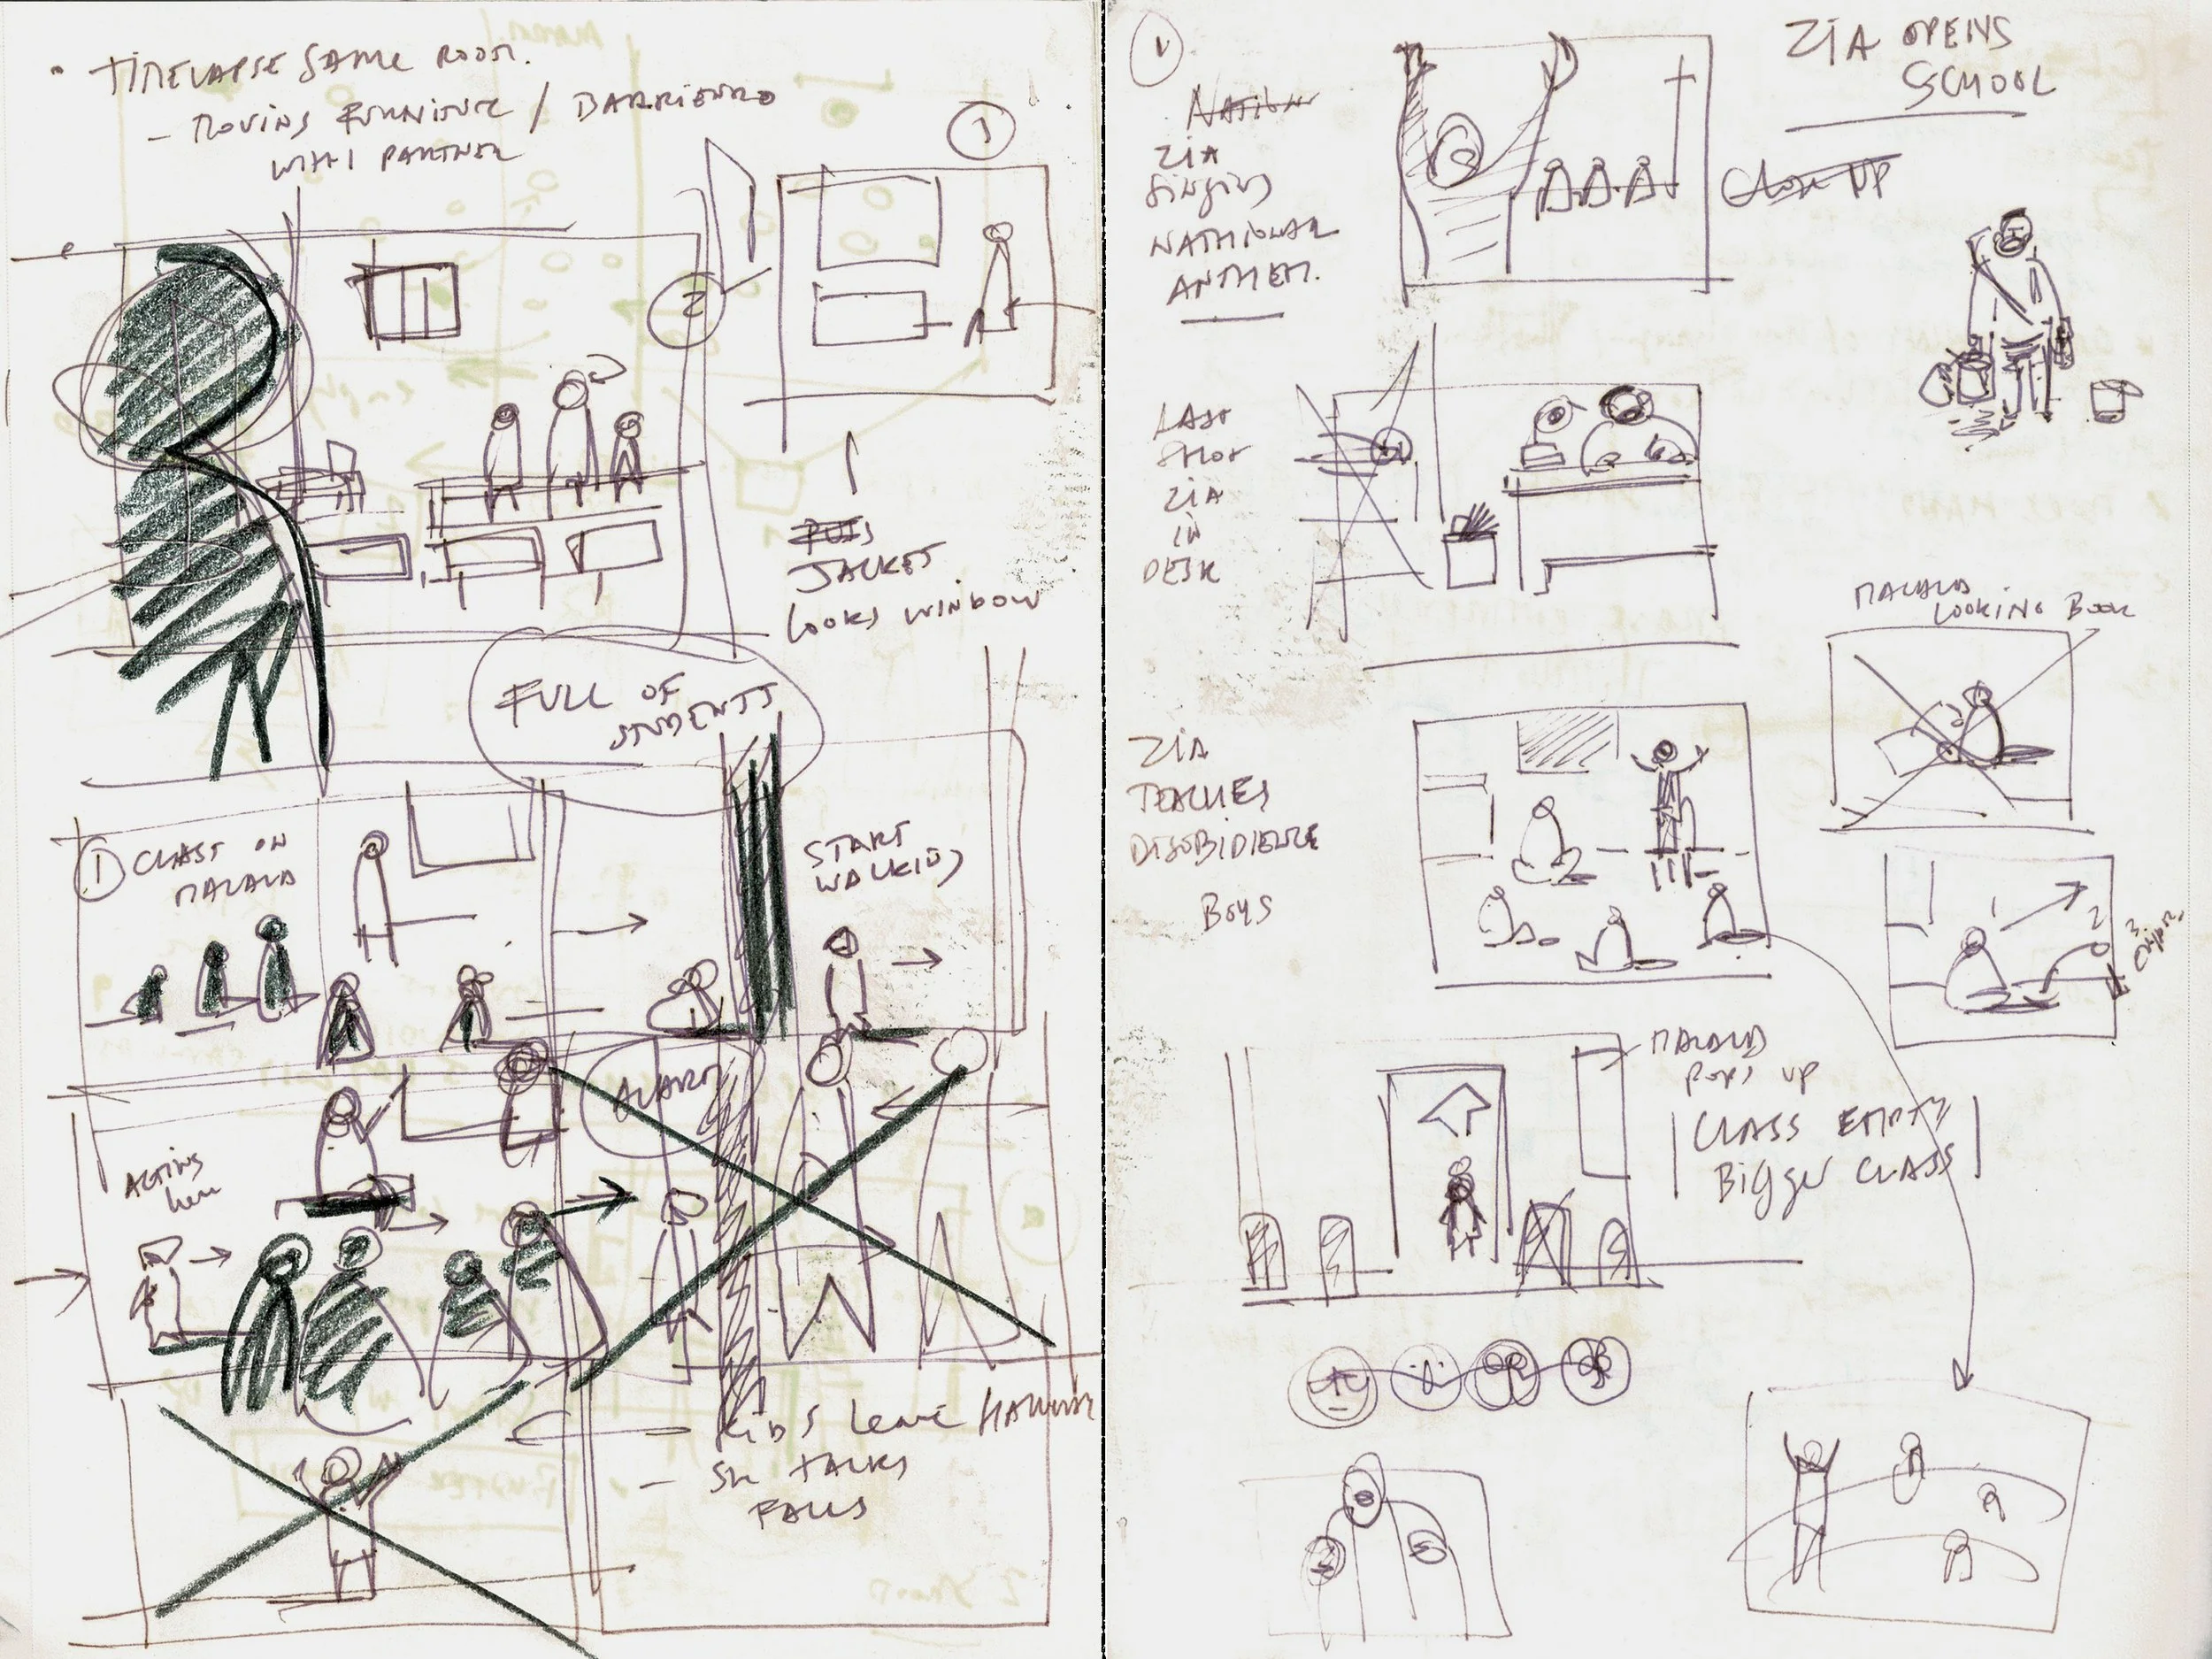 • TIMELAPSE SAME ROOM.
- MOVING FURNITURE / BARRIENDO
WITH PARTNER
3
2
PUTS
JACKET
LOOKS WINDOW
FULL OF
STUDENTS
1 CLASS ON
MALALA
START
WALKING
ALARM
ACTING
here
- KIDS LEAVE
- SHE TALKS
FALLS
1
ZIA OPENS
SCHOOL
NATION
ZIA
SINGING
NATHIONAL
ANTHEM.
CLOSE UP
LAST
SHOT
ZIA
IN
DESK
MALALA
LOOKING BOOK
ZIA
TEACHES
DISOBIDIENCE
BOYS
1
2
3
MALALA
POPS UP
CLASS EMPTY
BIGGER CLASS